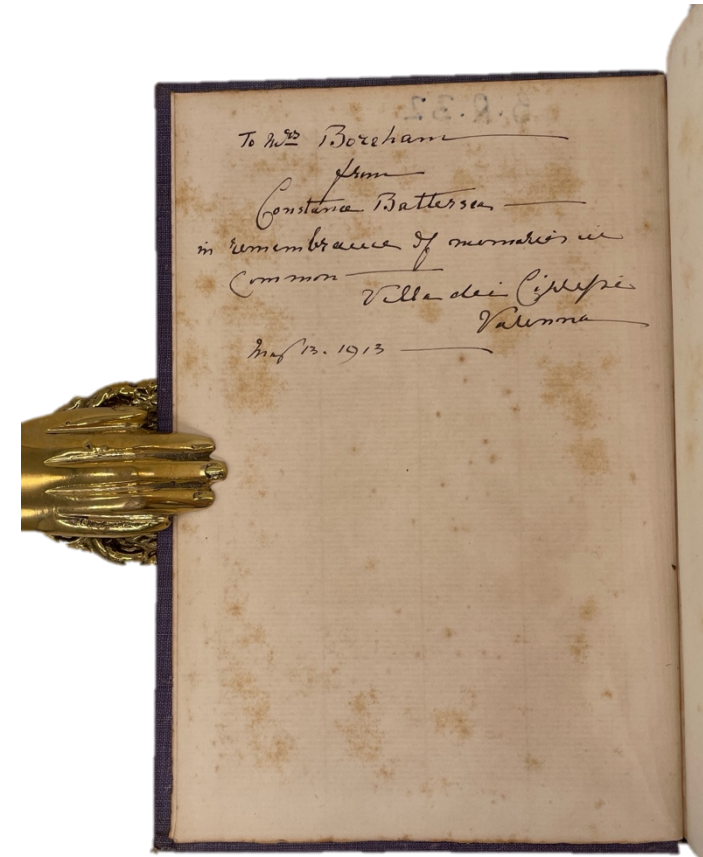 S.R.32.
To Mrs Boreham
from
Constance Battersea
in remembrance of memories in
Common
Villa dei Cipressi
Varenna
May 13. 1913